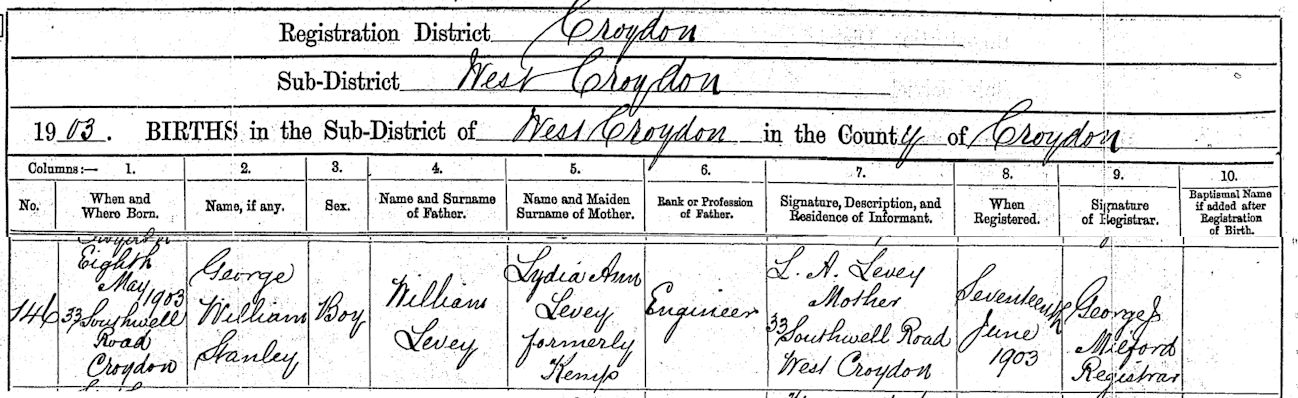 Registration District Croydon
Sub-District West Croydon
1903. BIRTHS in the Sub-District of West Croydon in the County of Croydon
Columns:— 1. 2. 3. 4. 5. 6. 7. 8. 9. 10.
No. When and Where Born. Name, if any. Sex. Name and Surname of Father. Name and Maiden Surname of Mother. Rank or Profession of Father. Signature, Description, and Residence of Informant. When Registered. Signature of Registrar. Baptismal Name if added after Registration of Birth.
146
Eighth
May 1903
33 Southwell
Road
Croydon
George
William
Stanley
Boy
William
Levey
Lydia Ann
Levey
formerly
Kemp
Engineer
L. A. Levey
Mother
33 Southwell Road
West Croydon
Seventeenth
June
1903
George J
Milford
Registrar